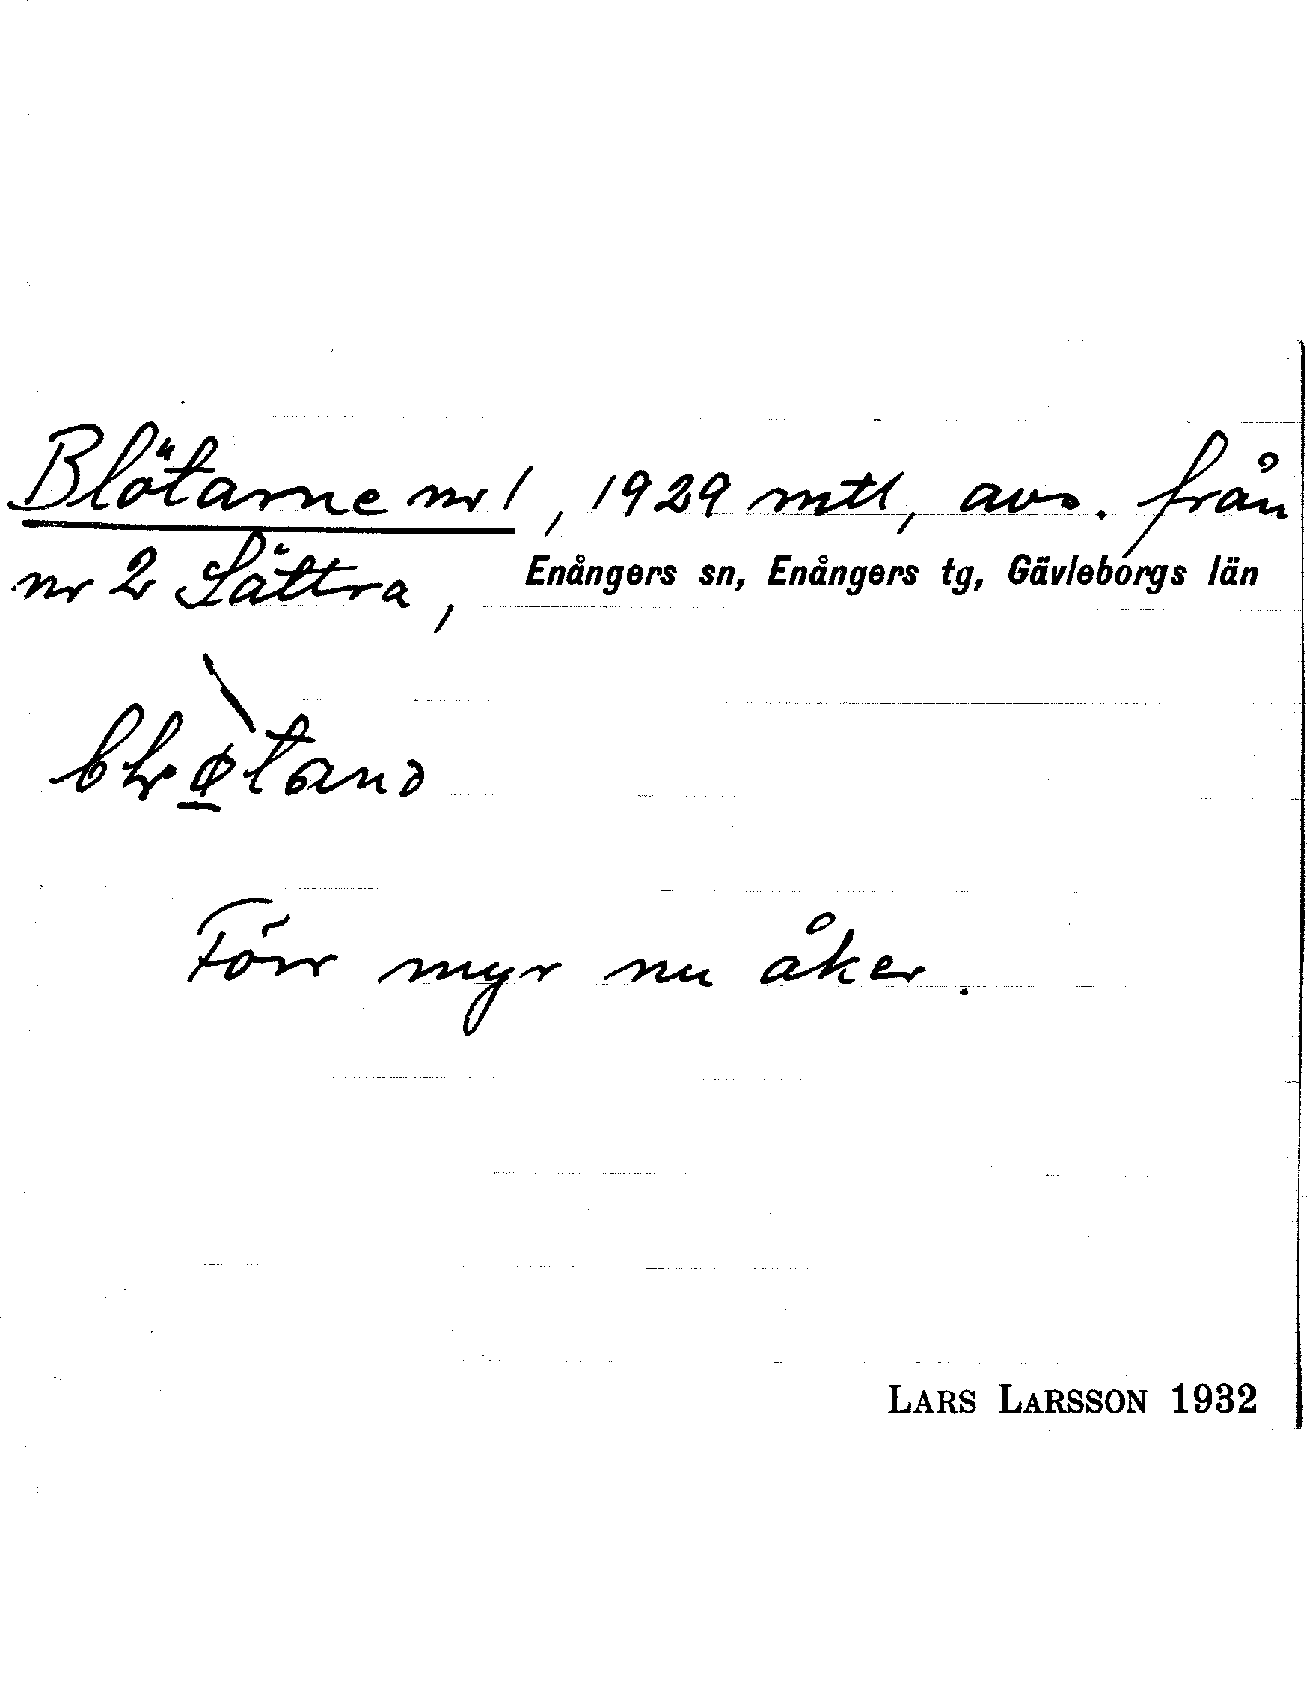 Blötarne nr 1, 1929 mtl, avs. från
nr 2 Sättra, Enångers sn, Enångers tg, Gävleborgs län
Förr myr nu åker.
LARS LARSSON 1932